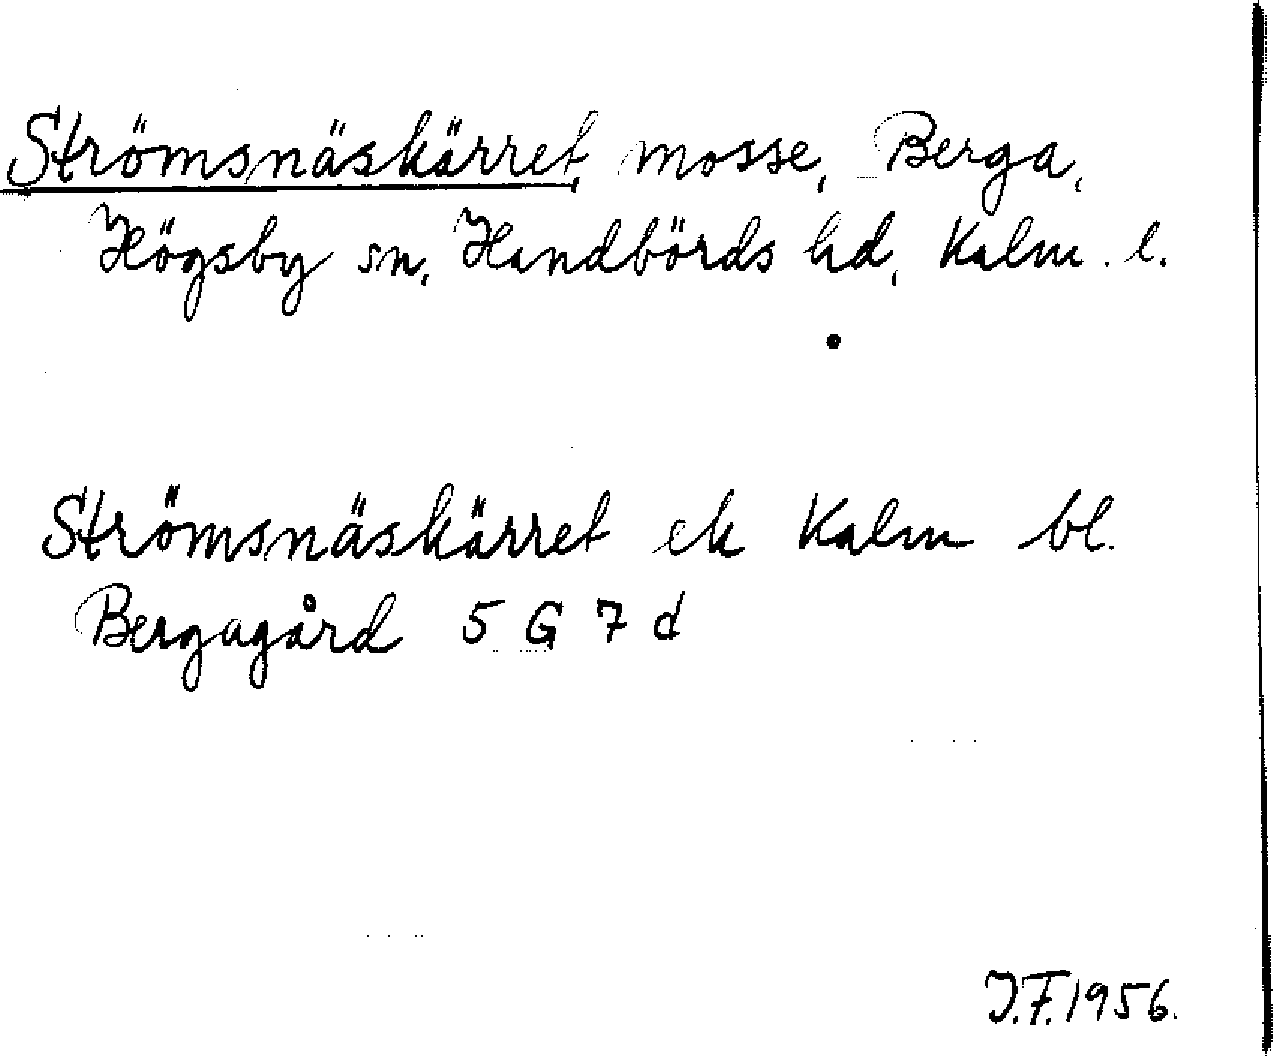 Strömsnäskärret, mosse, Berga,
Högsby sn, Handbörds hd, Kalm. l.
Strömsnäskärret ek Kalm bl.
Bergagård 5 G 7 d
J.F. 1956.